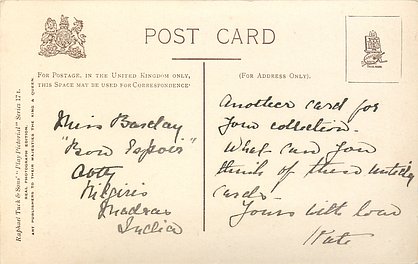 POST CARD
FOR POSTAGE, IN THE UNITED KINGDOM ONLY,
THIS SPACE MAY BE USED FOR CORRESPONDENCE
(FOR ADDRESS ONLY).
Raphael Tuck & Sons' "Play Pictorial" Series 171.
ART PUBLISHERS TO THEIR MAJESTIES THE KING & QUEEN.
Miss Barclay
"Bon Espoir"
Ooty
Nilgiris
Madras
India
Another card for
your collection.
What can you
think of these
cards
Yours with love
Kate